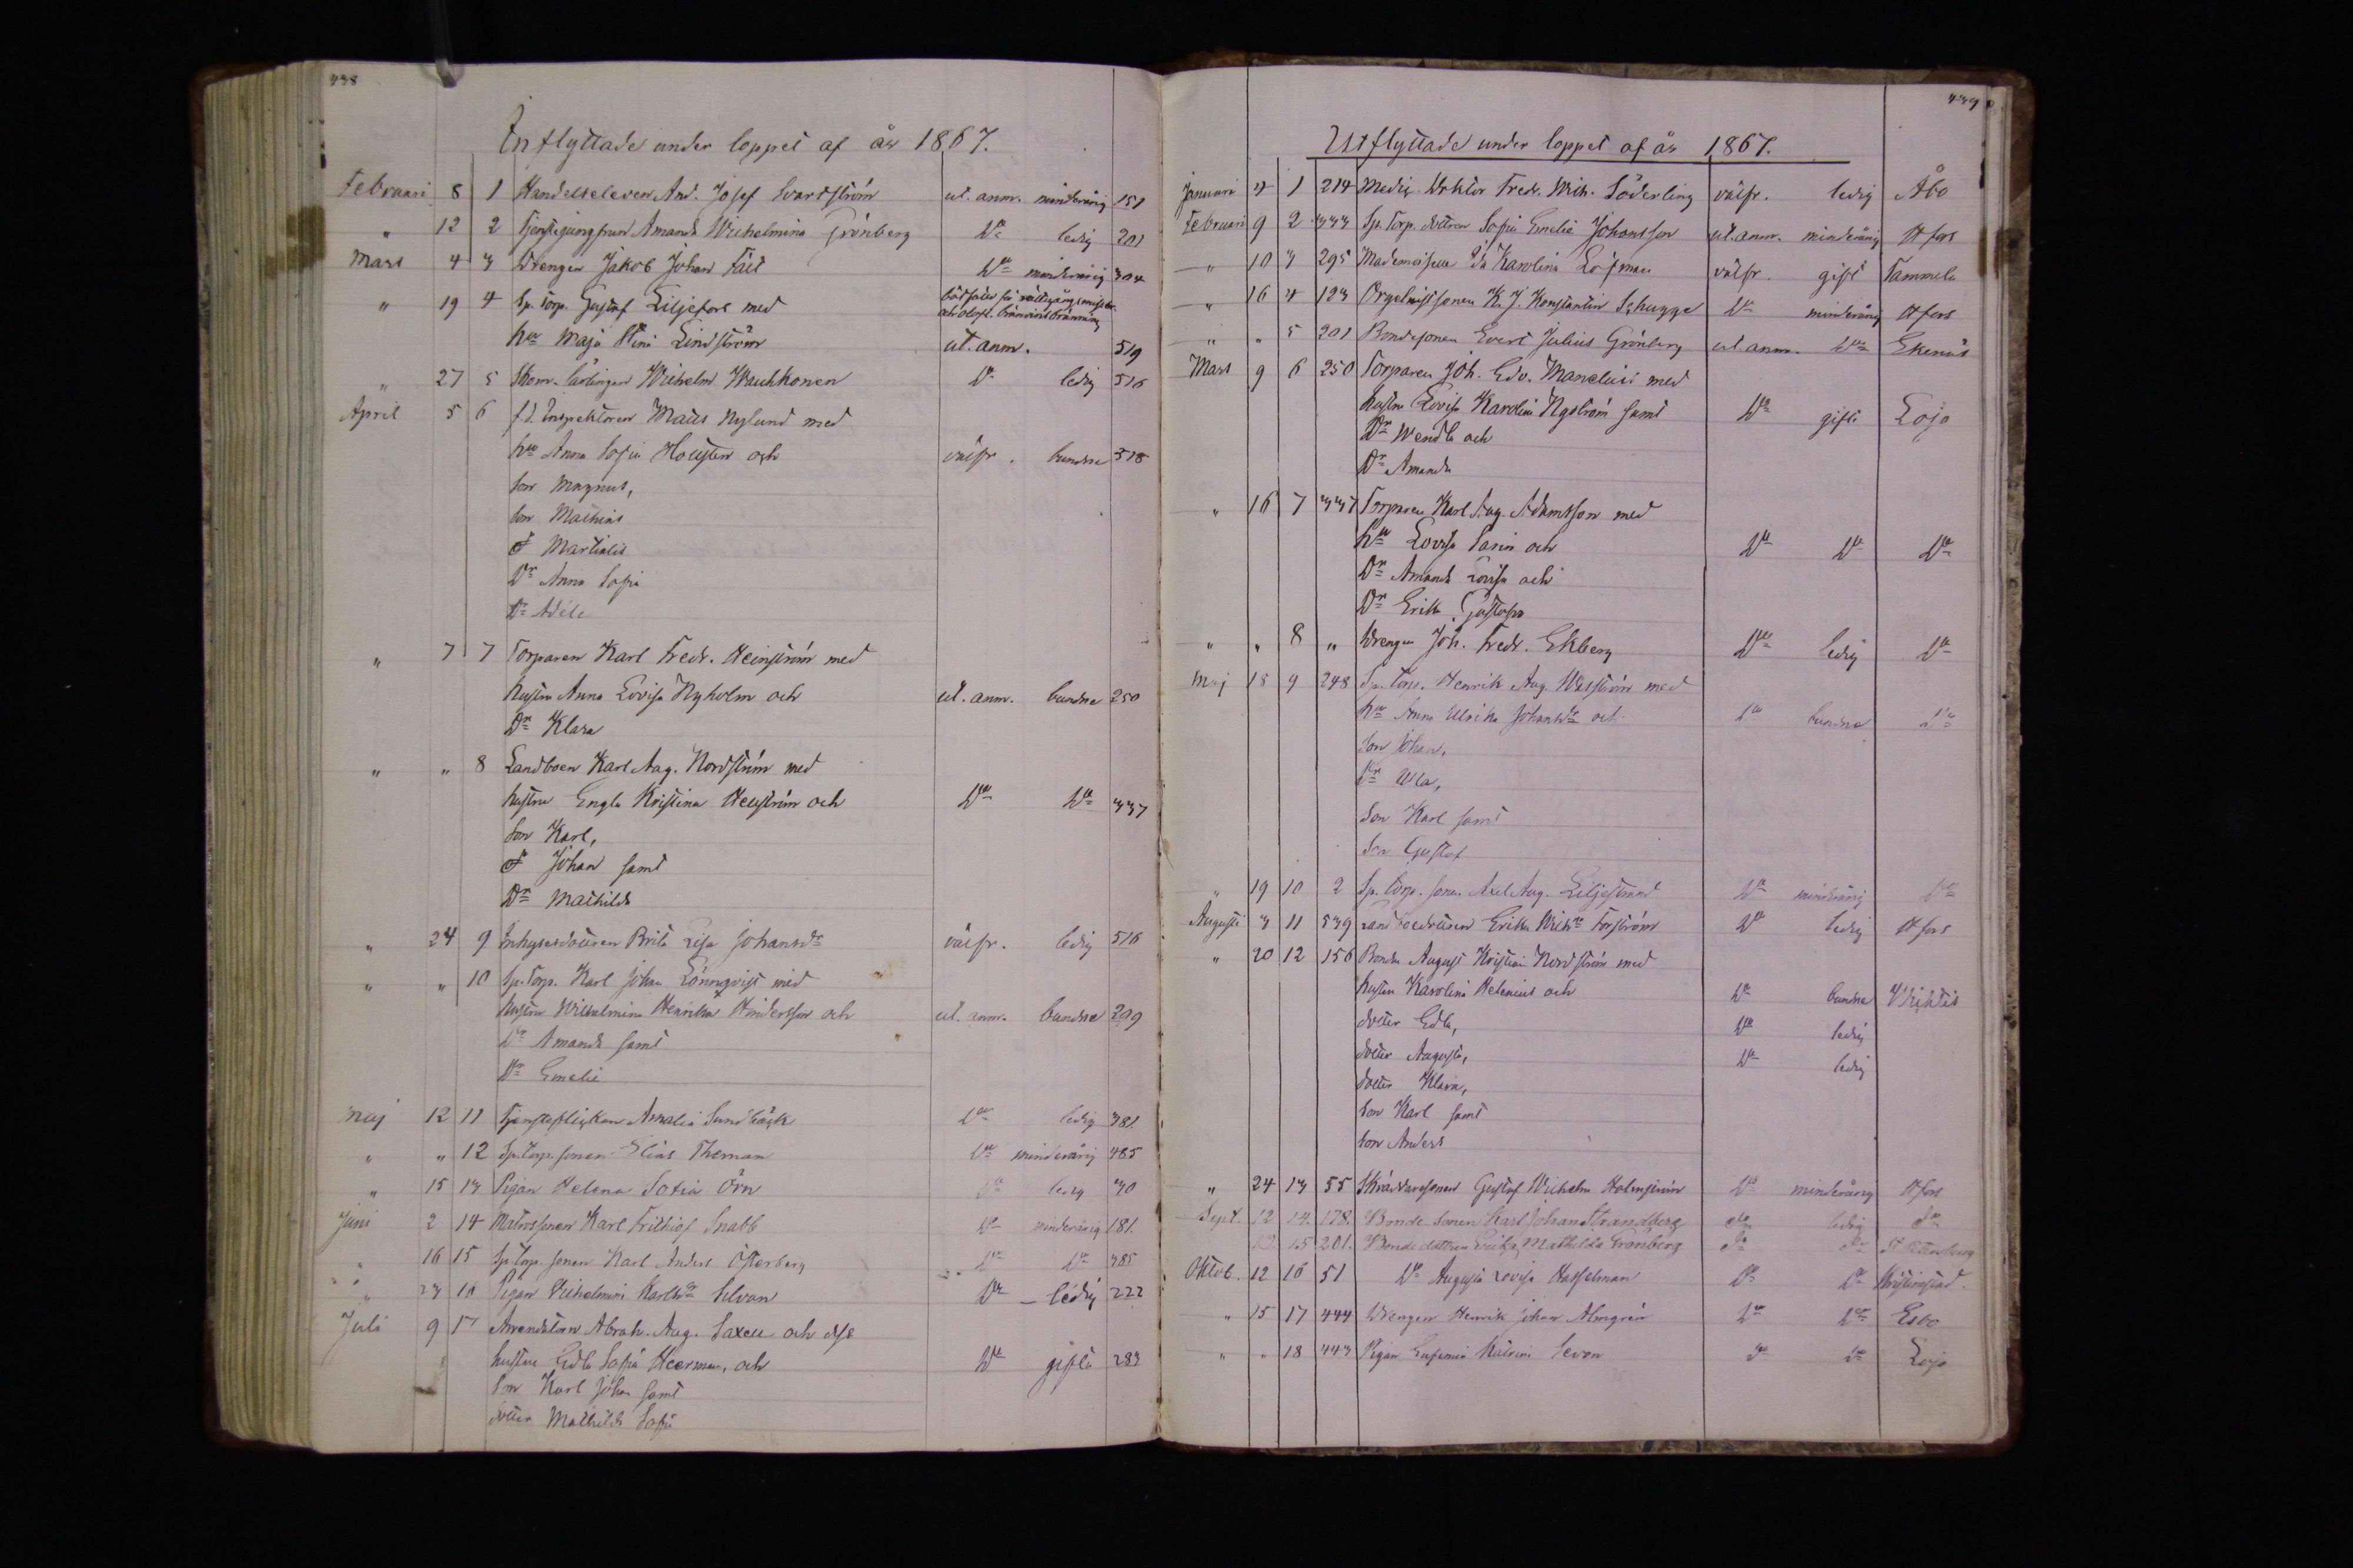 338
Inflyttade under loppet af år 1867.
Februari 8 1 Handelseleven And. Josef Svartström ut. anm. minderårig 151
" 12 2 Tjenstejungfrun Amanda Wilhelmina Grönberg D:o ledig 201
Mars 4 3 Drengen Jakob Johan Fält D:o minderårig 304
" 19 4 Sp. torp. Gustaf Liljefors med
h:u Maja Stina Lindström ut. anm. 519
" 27 5 Skom. lärlingen Wilhelm Wauhkonen D:o ledig 516
April 5 6 f.d. Inspektoren Matts Nylund med
h:u Anna Sofia Holsten och välfr. bundne 518
son Magnus,
son Mathias
d:o Martialis
D:r Anna Sofia
D:r Adéle
" 7 7 Torparen Karl Fredr. Heinström med
hustru Anna Lovisa Nyholm och ut. anm. bundne 250
D:r Klara
" " 8 Landboen Karl Aug. Nordström med
hustru Engla Kristina Hellström och D:o D:o 337
son Karl,
d:o Johan samt
D:r Mathilda
" 24 9 Inhysesdottren Brita Lisa Johansd:r välfr. ledig 516
" " 10 Sp. torp. Karl Johan Lönnqvist med
hustru Wilhelmina Henrika Hindersson och ut. anm. bundne 299
D:r Amanda samt
D:r Emelie
Maj 12 11 Tjensteflickan Amalia Sundbäck D:o ledig 381.
" " 12 Sp. torp. sonen Elias Theman D:o minderårig 485
" 15 13 Pigan Helena Sofia Örn D:o ledig 30
Juni 2 14 Matrossonen Karl Frithiof Snabb D:o minderårig 181.
" 16 15 Sp. torp. sonen Karl Anders Österberg D:o D:o 385
" 23 16 Pigan Wilhelmina Karlsd:r Silvan D:o ledig 222
Juli 9 17 Arendatorn Abrah. Aug. Saxell och dess
hustru Edla Sofia Heerman, och D:o gifta 283
son Karl Johan samt
dotter Mathilda Sofia
339
Utflyttade under loppet af år 1867.
Januari 4 1 214 Medic. Doktor Fredr. Wilh. Söderling välfr. ledig Åbo
Februari 9 2 333 Sp. Torp. dottren Sofia Emelia Johansson ut. anm. minderårig Hfors
" 10 3 295 Mademoiselle Ida Karolina Löfman välfr. gift Tammela
" 16 4 123 Orgelnistsonen K. J. Konstantin Schugge D:o minderårig Hfors
" " 5 201 Bondesonen Evert Julius Grönberg ut. anm. D:o Ekenäs
Mars 9 6 250 Torparen Joh. Edv. Manelius med
hustru Lovisa Karolina Nyström samt D:o gifta Lojo
D:r Wendla och
D:r Amanda
" 16 7 337 Torparen Karl Aug. Adamsson med
h:u Lovisa Sarin och D:o D:o D:o
D:r Amanda Lovisa och
D:r Erika Gustafva
" " 8 " Drengen Joh. Fredr. Ekberg D:o ledig D:o
Maj 18 9 248 Sp. Torp. Henrik Aug. Wasström med
h:u Anna Ulrika Johansd:r och D:o bundna D:o
son Johan,
D:r Ulla,
son Karl samt
son Gustaf
" 19 10 2 Sp. torp. sonen Axel Aug. Liljestrand D:o minderårig D:o
Augusti 3 11 539 Landboedottren Erika Wilh:a Forström D:o ledig Hfors
" 20 12 156 Bonden August Kristian Nordström med
hustru Karolina Helenius och D:o bundna Wichtis
dotter Edla, D:o ledig
dotter Augusta, D:o ledig
dotter Klara,
son Karl samt
son Anders
" 24 13 55 Skräddaresonen Gustaf Wilhelm Holmström D:o minderårig Hfors
Sept. 12 14. 178. Bonde sonen Karl Johan Strandberg D:o ledig D:o
13 15 201. Bonde dottren Erika Mathilda Grönberg D:o D:o St Petersburg
Oktob. 12 16 51 D:o Augusta Lovisa Hasselman D:o D:o Kristinestad.
" 15 17 444 Drengen Henrik Johan Almgrén D:o D:o Esbo
" " 18 443 Pigan Eufemia Katrina Sevon D:o D:o Lojo